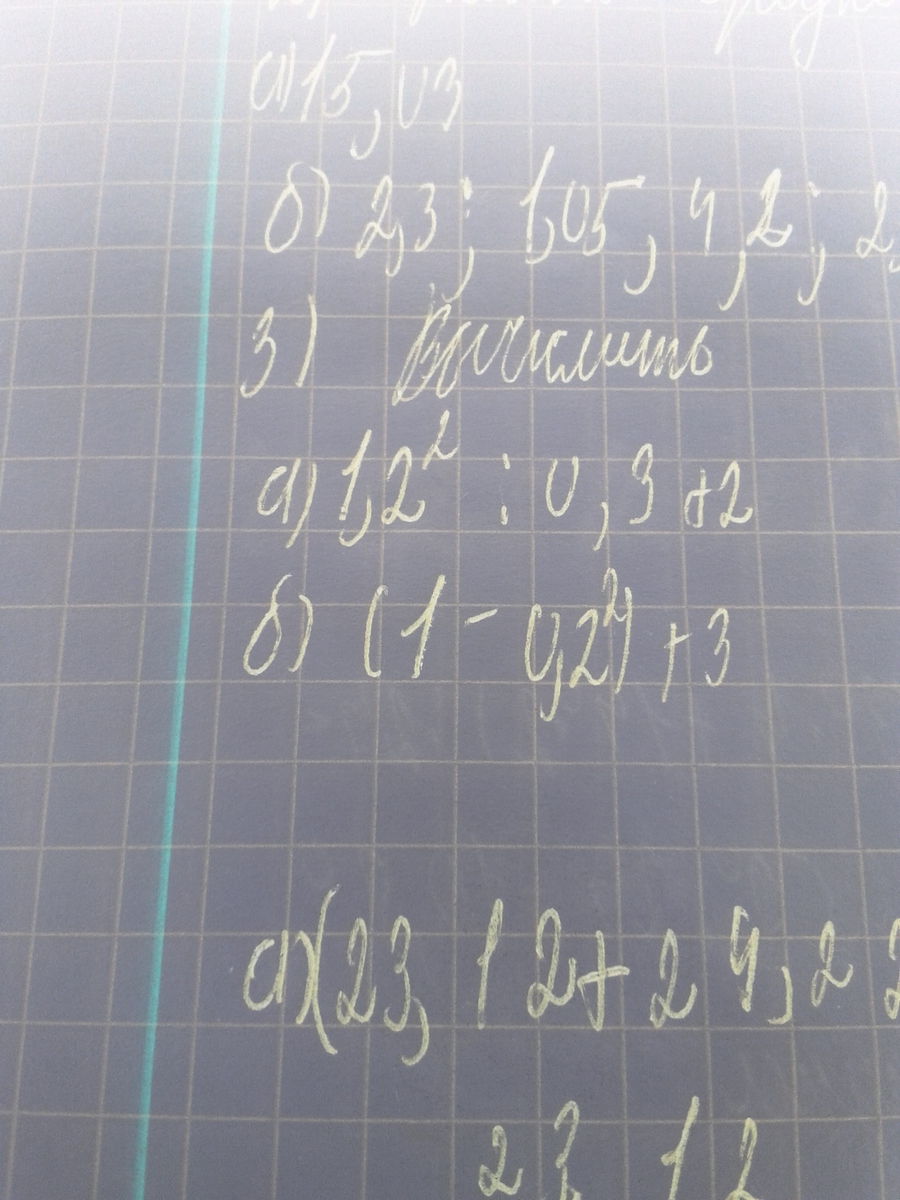 а) 15,03
б) 2,3; 1,05, 4,2; 2,
3) Вычислить
а) 1,2² : 0,3 + 2
б) (1 - 0,2²) + 3
а) (23, 12 + 24,2 2
23, 12